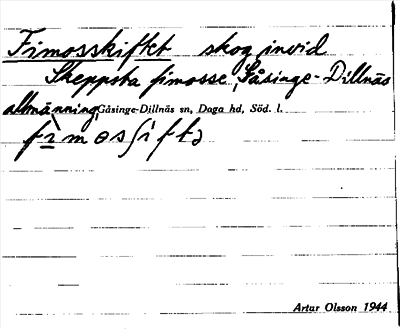 Fimosskiftet skog invid
Skeppsta fimosse, Gåsinge-Dillnäs
allmänning, Gåsinge-Dillnäs sn, Daga hd, Söd. l.
fìmosʃìftə
Artur Olsson 1944